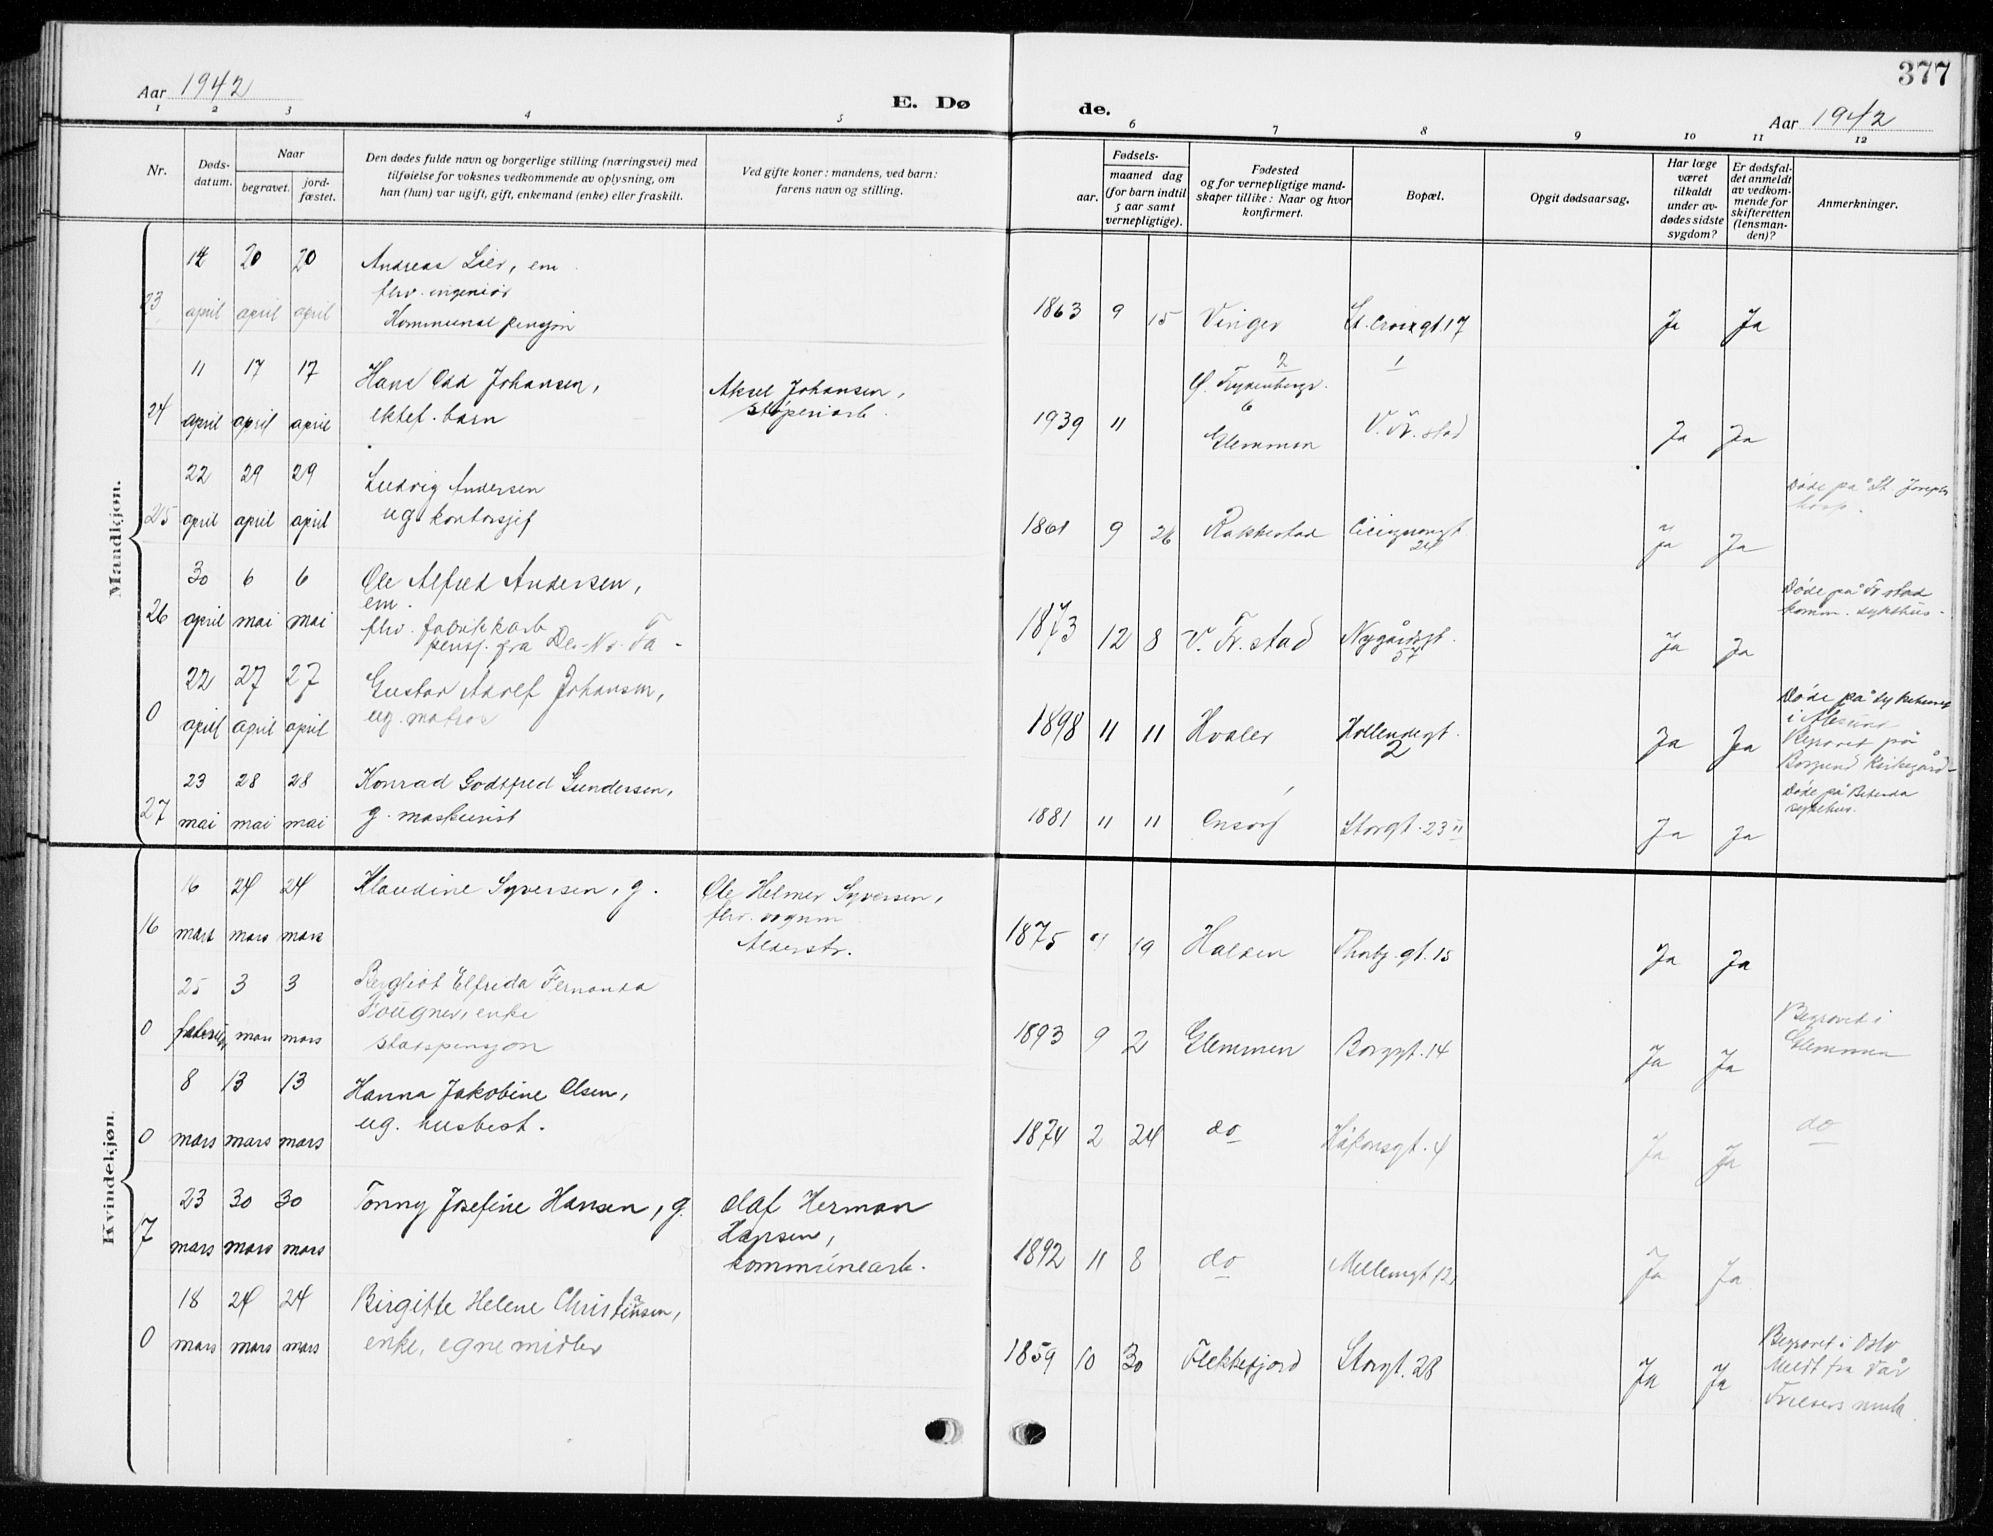 377
Aar 1942
E. Dø
de.
Aar 1942
1 2 3 4 5 6 7 8 9 10 11 12
Nr.
Døds-
datum.
Naar
begravet.
jord-
fæstet.
Den dødes fulde navn og borgerlige stilling (næringsvei) med
tilføielse for voksnes vedkommende av oplysning, om
han (hun) var ugift, gift, enkemand (enke) eller fraskilt.
Ved gifte koner: mandens, ved barn:
farens navn og stilling.
Fødsels-
aar.
maaned dag
(for barn indtil
5 aar samt
vernepligtige).
Fødested
og for vernepligtige mand-
skaper tillike: Naar og hvor
konfirmert.
Bopæl.
Opgit dødsaarsag.
Har læge
været
tilkaldt
under av-
dødes sidste
sygdom?
Er dødsfal-
det anmeldt
av vedkom-
mende for
skifteretten
(lensman-
den)?
Anmerkninger.
Mandkjøn.
14 20 20 Andreas Lier, em
fhv. ingeniør
23 april april april Kommunal pensjon 1863 9 15 Vinger St. Croixgt. 17 Ja Ja
11 17 17 Hans Odd Johansen, Aksel Johansen,
24 april april april ektef. barn støperiarb. 1939 11 Glemmen V. Fr. stad Ja Ja
22 29 29 Ludvig Andersen Døde på St. Josephs
hosp.
25 april april april ug. kontorsjef 1861 9 26 Rakkestad Ja Ja
30 6 6 Ole Alfred Andersen, Døde på Fr stad
komm. sykehus.
em.
26 april mai mai fhv. fabrikkarb 1873 12 8 V. Fr. stad Nygårdsgt. 57 Ja Ja
pensj. fra De. No. Fa.
22 27 27 Gustav Adolf Johansen, Døde på sykehuset
i Ålesund
0 april april april ug. matros 1898 11 11 Hvaler Hollendegt. 2 Ja Ja Begravet på
Borgund Kirkegård
23 28 28 Konrad Godtfred Gundersen, Døde på Betesda
sykehus.
27 mai mai mai g. maskinist 1881 11 11 Onsøy Storgt. 23 II Ja Ja
Kvindekjøn.
16 24 24 Klaudine Syversen, g. Ole Helmer Syversen,
fhv. vognm
16 mars mars mars Alderstr. 1875 19 Halden Thorbj. gt. 15 Ja Ja
25 3 3 Bergliot Elfrida Fernanda
Fougner, enke Begravet i
0 februar mars mars statspensjon 1893 9 2 Glemmen Borggt. 14 Ja Ja Glemmen
8 13 13 Hanna Jakobine Olsen,
0 mars mars mars ug. husbest. 1874 2 24 do Håkonsgt. 4 Ja Ja do
23 30 30 Tonny Josefine Hansen, g. Olaf Herman
Hansen,
17 mars mars mars kommunearb. 1892 11 8 do Mellemgt 12 Ja Ja
18 24 24 Birgitte Helene Christensen, Begravet i Oslo
0 mars mars mars enke, egne midler 1859 10 30 Flekkefjord Storgt. 28 Ja Ja Meldt fra Vår
Frelsers